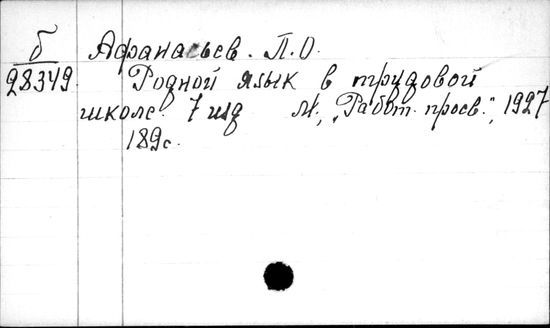 б Афанасьев. П.О.
28349 Родной язык в трудовой
школе. 7 изд М., "Работ. просв.", 1927
189с.